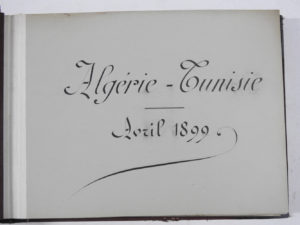 Algérie - Tunisie
Avril 1899